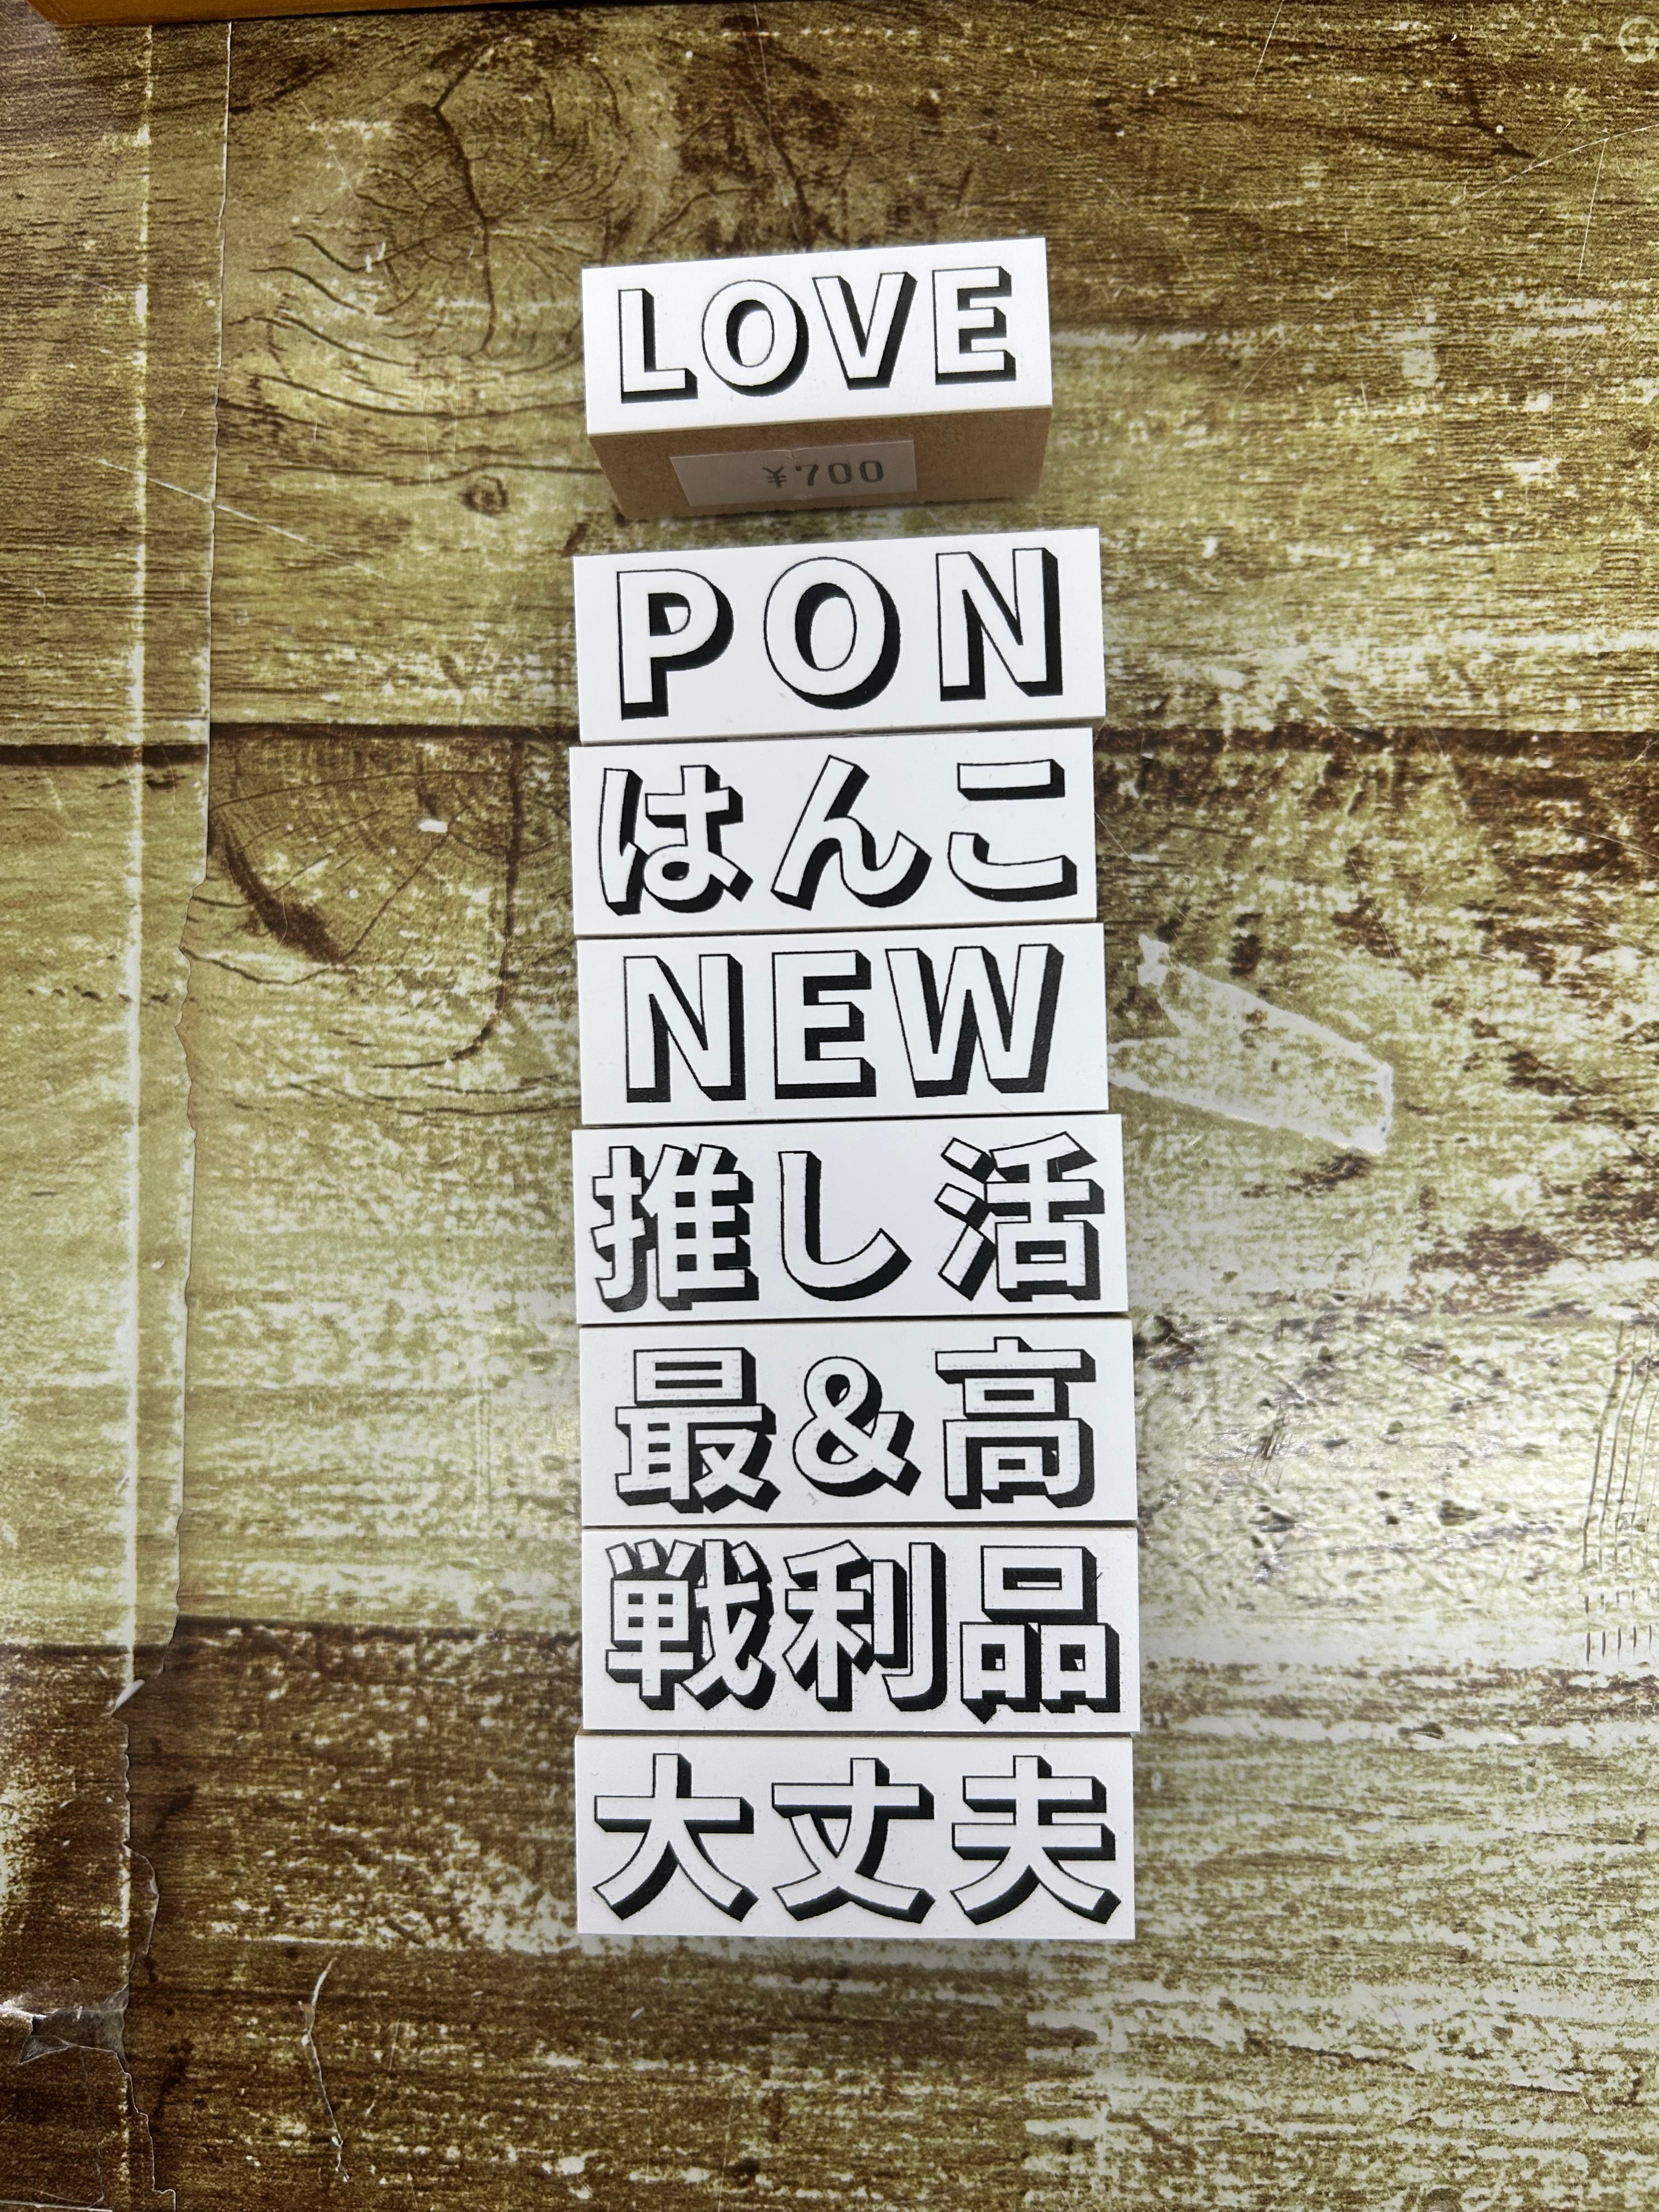 LOVE
¥700
PON
はんこ
NEW
推し活
最&高
戦利品
大丈夫